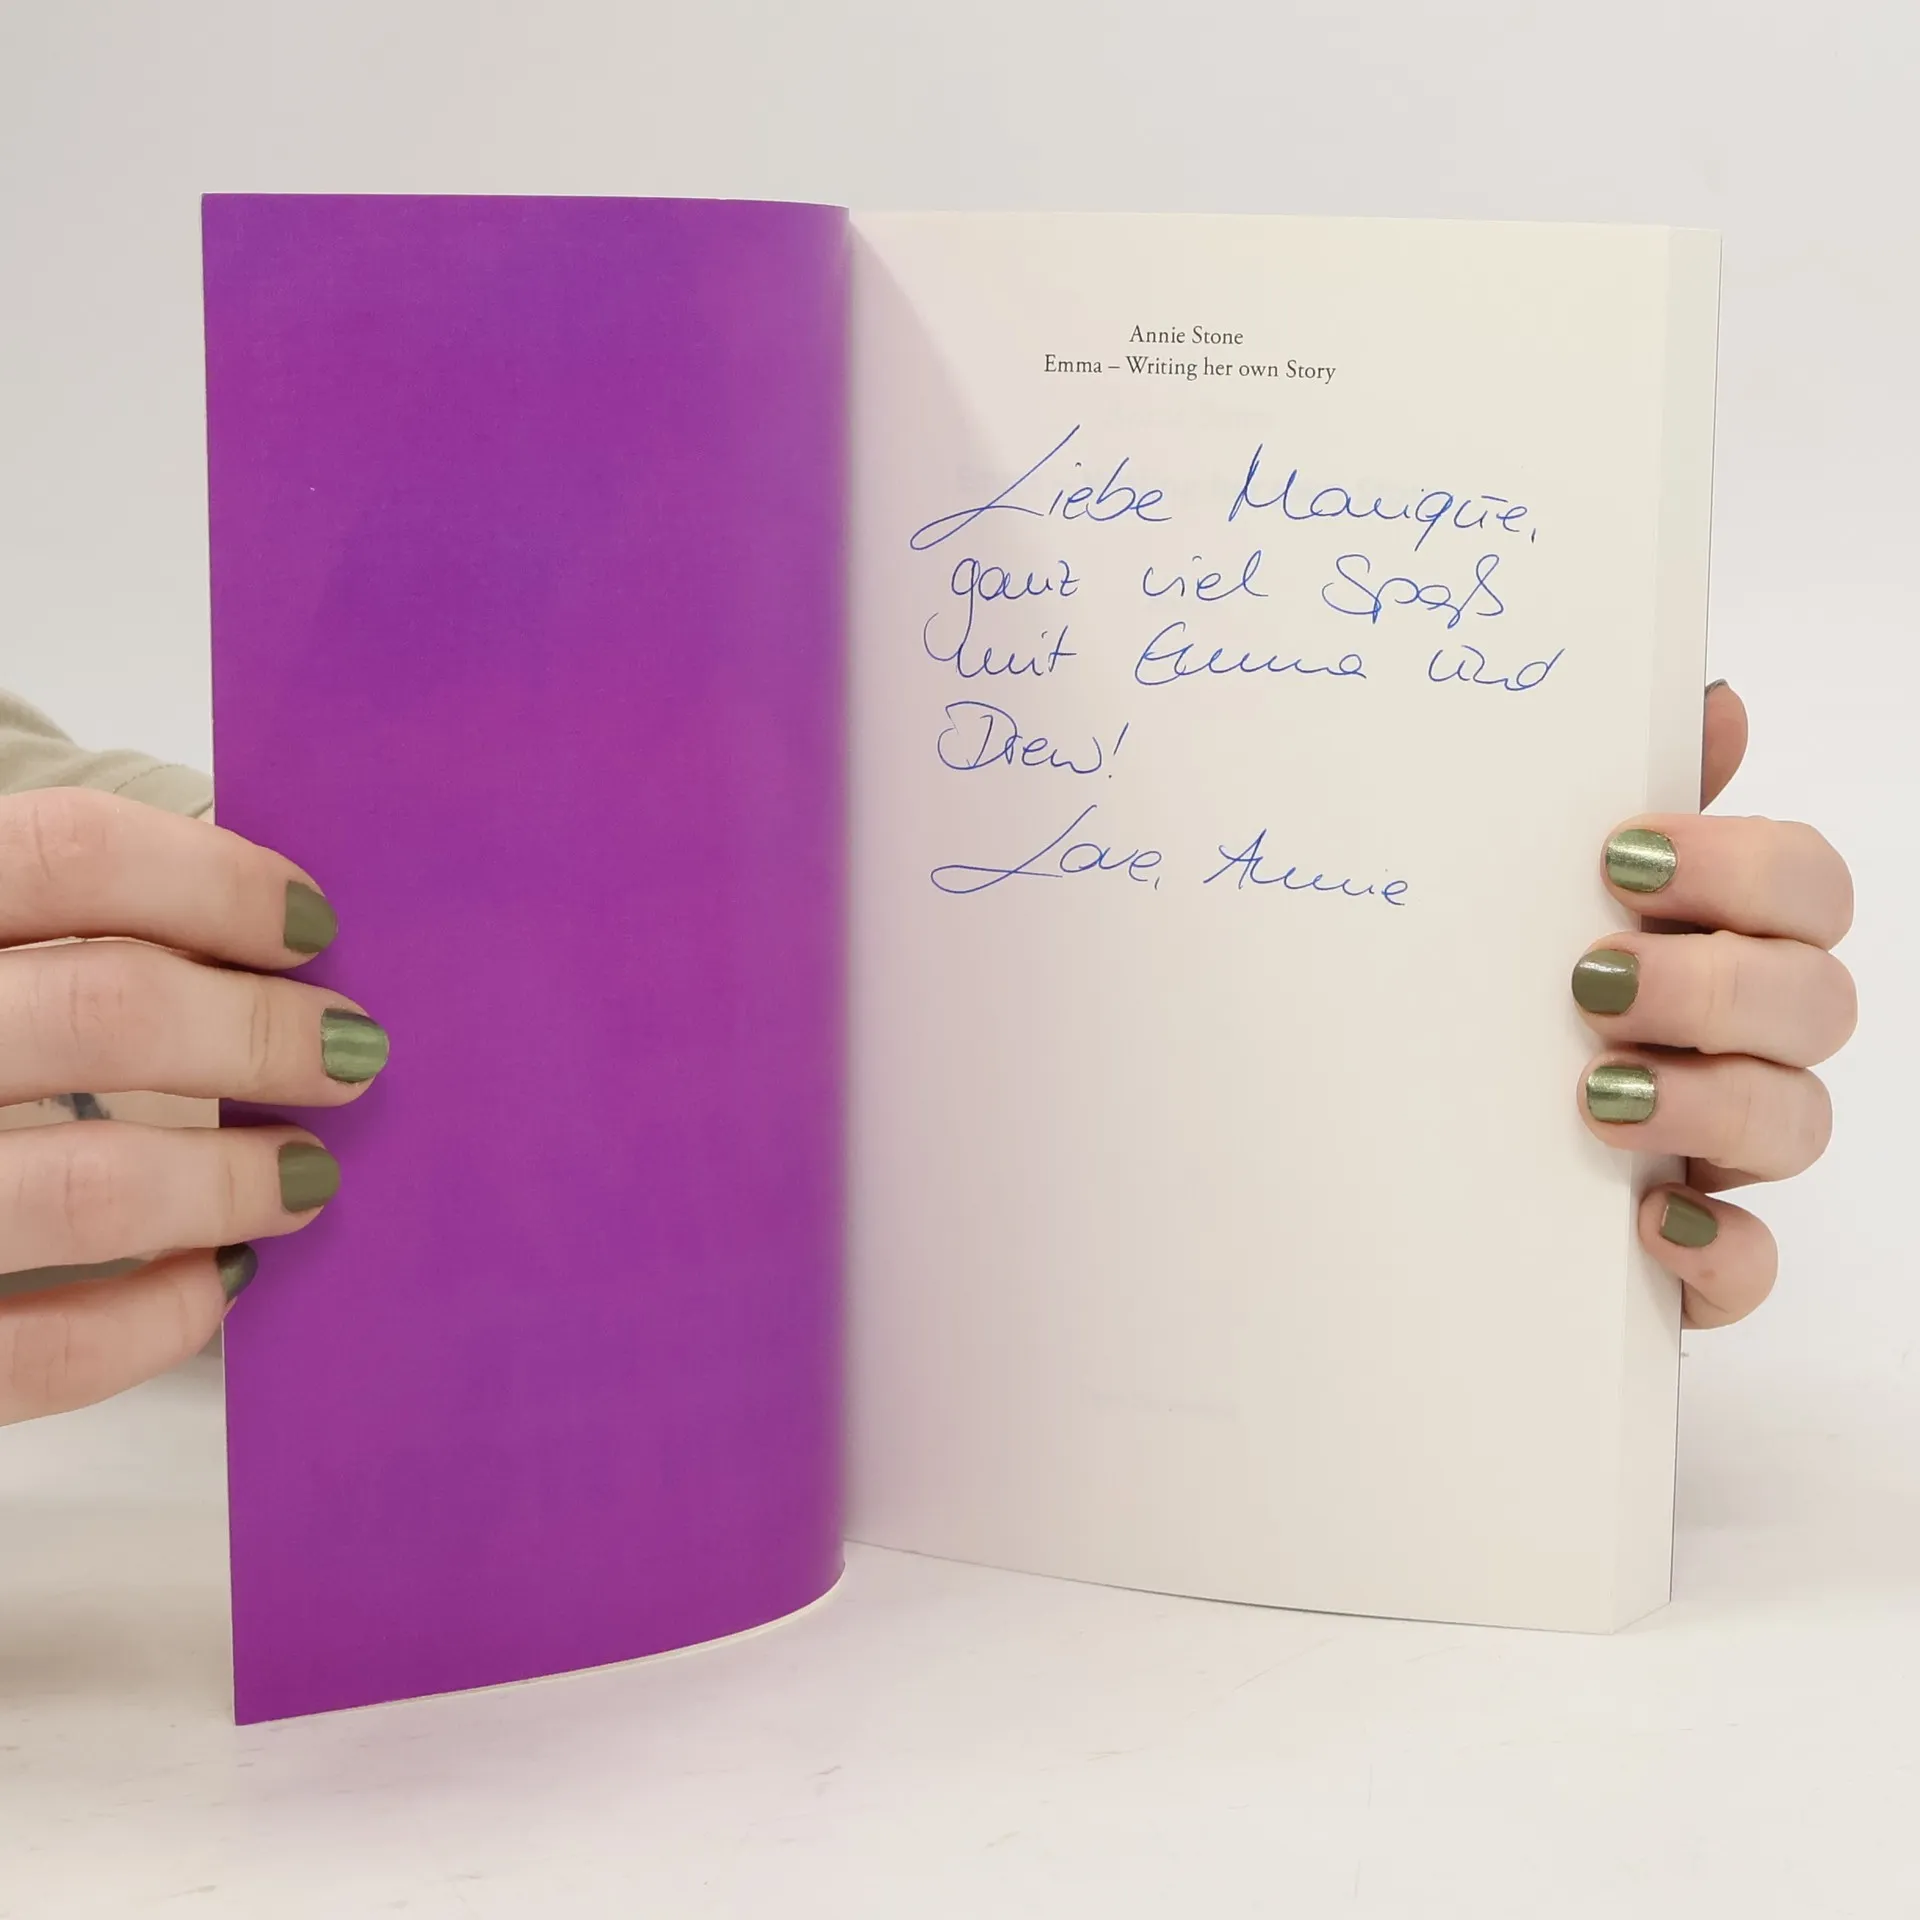 Annie Stone
Emma – Writing her own Story
Liebe Monique,
ganz viel Spaß
mit Emma und
Drew!
Love, Annie